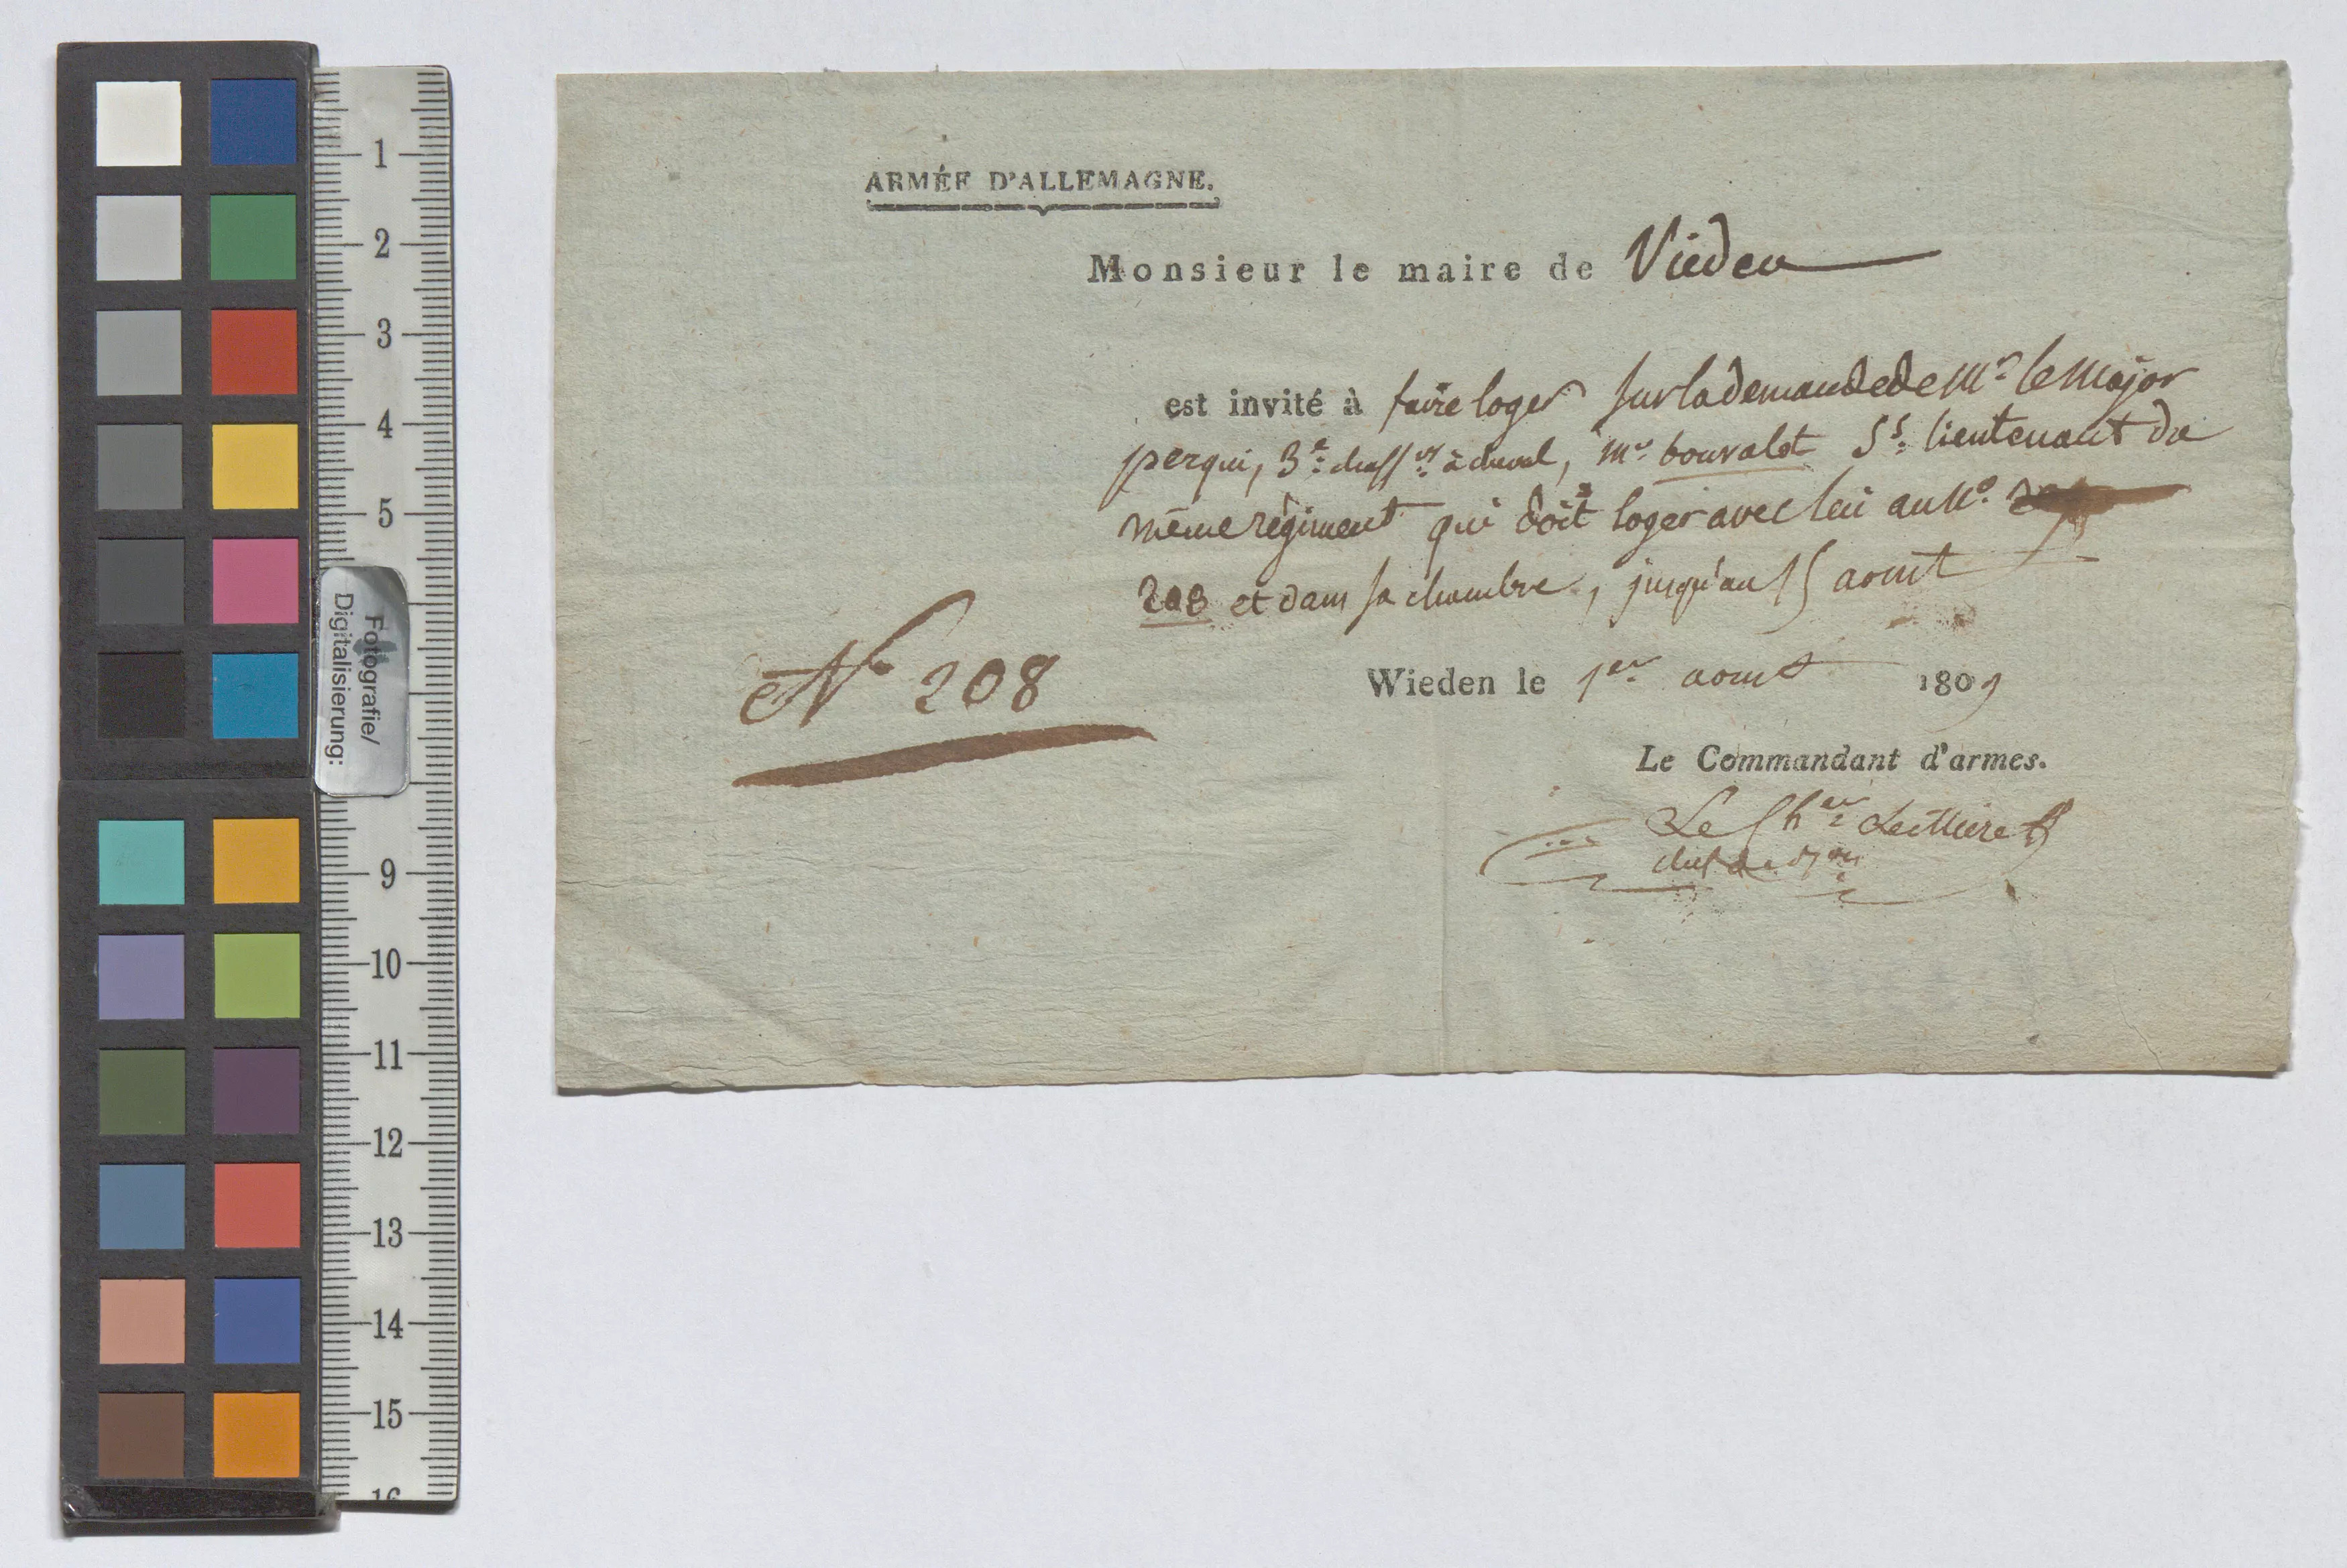 1
2
3
4
5
Fotografie/
Digitalisierung:
9
10
11
12
13
14
15
16
ARMÉE D'ALLEMAGNE.
Monsieur le maire de Vieden
est invité à faire loger sur la demande de Mr. le Major
perqui, 3e. chassrs. à cheval, Mr. bouvalot Ss. lieutenant du
même régiment qui doit loger avec lui au No.
208 et dans sa chambre, jusqu'au 15 aoust
No 208
Wieden le 1er. aoust 1809
Le Commandant d'armes.
Le Cher.
chef de